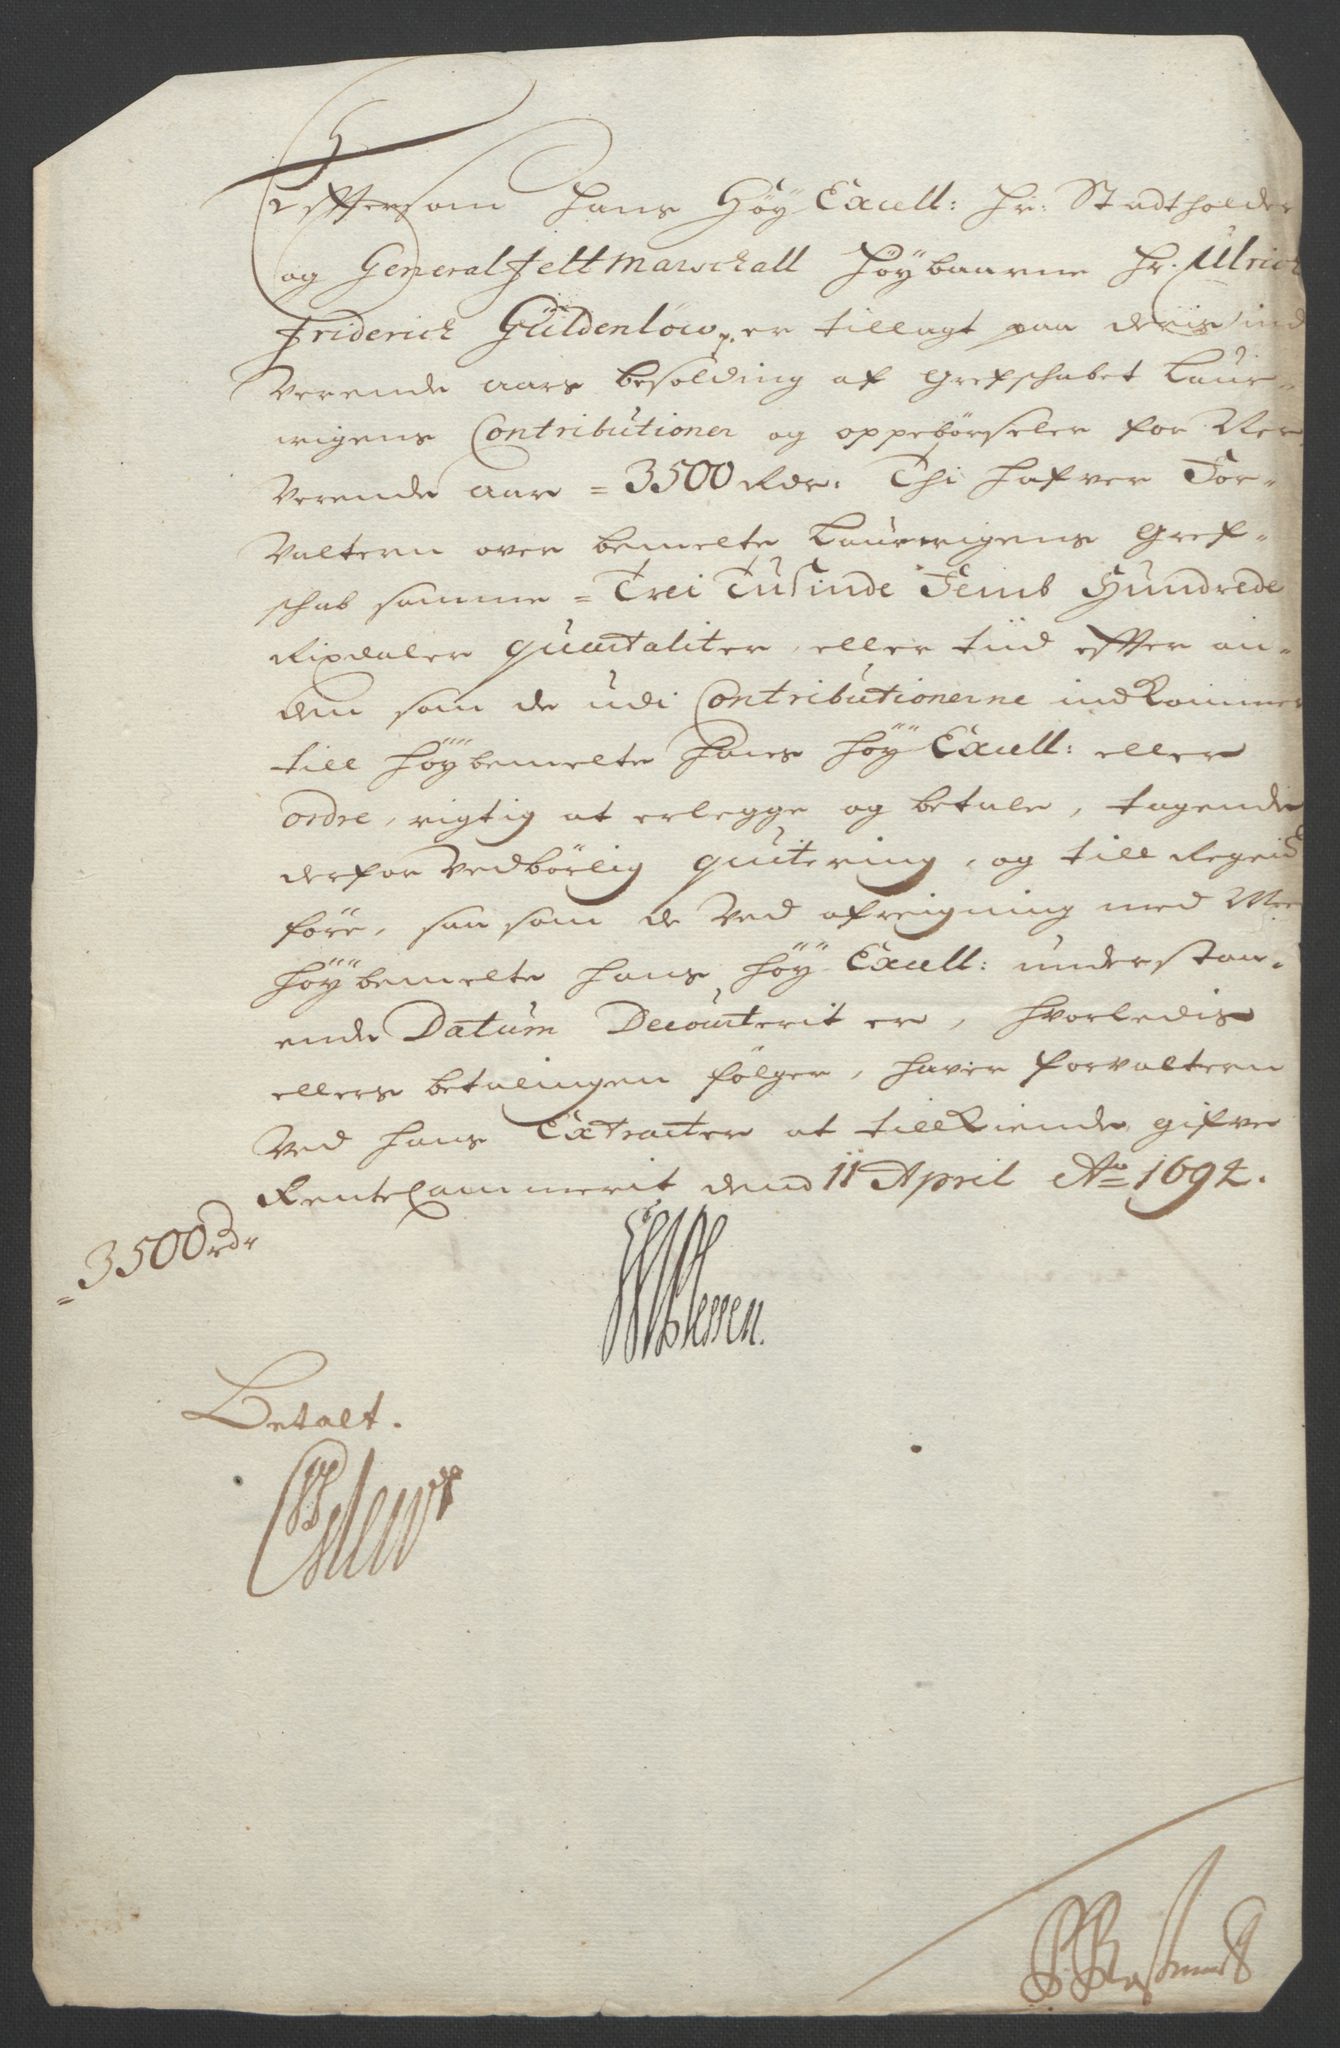 Efftersom Hans Høy Excell: Hr: Stadtholder
og General Feltmarschall Høybaarne Hr. Ulrich
Friderich Güldenlöw p. er tillagt paa deris ind
Verende aars besolding af Grefschabet Laur-
wigens Contributioner og oppebørseler for Ner
Verende aar = 3500 Rdr. Thi hafver For-
Valtern over bemelte Laurwigens Gref-
schab samme = Trei Tusinde Femb Hundrede
Rixdaler quartaliter, eller tiid effter an-
den som de udi Contributionerne indkommer
till Høybemelte Hans Høy Excell: eller
ordre, rigtig at erlegge og betale, tagende
derfor Vedbørlig quitering, og till Regensk
føre, saa som de Ved afreigning med
Høybemelte Hans Høy Excell: understaa-
ende Datum Decourterit er, Hvorledis
ellers betalingen følger, haver Forvaltern
Ved Hans Extracter at tilkiende gifve
RenteCammerit dend 11 April Ao 1692.
= 3500 rdr
Plessen.
Betalt.